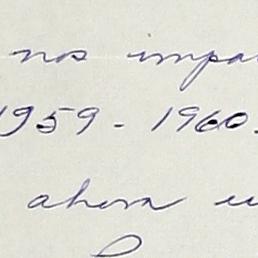 nos impa
1959 - 1960.
ahora u